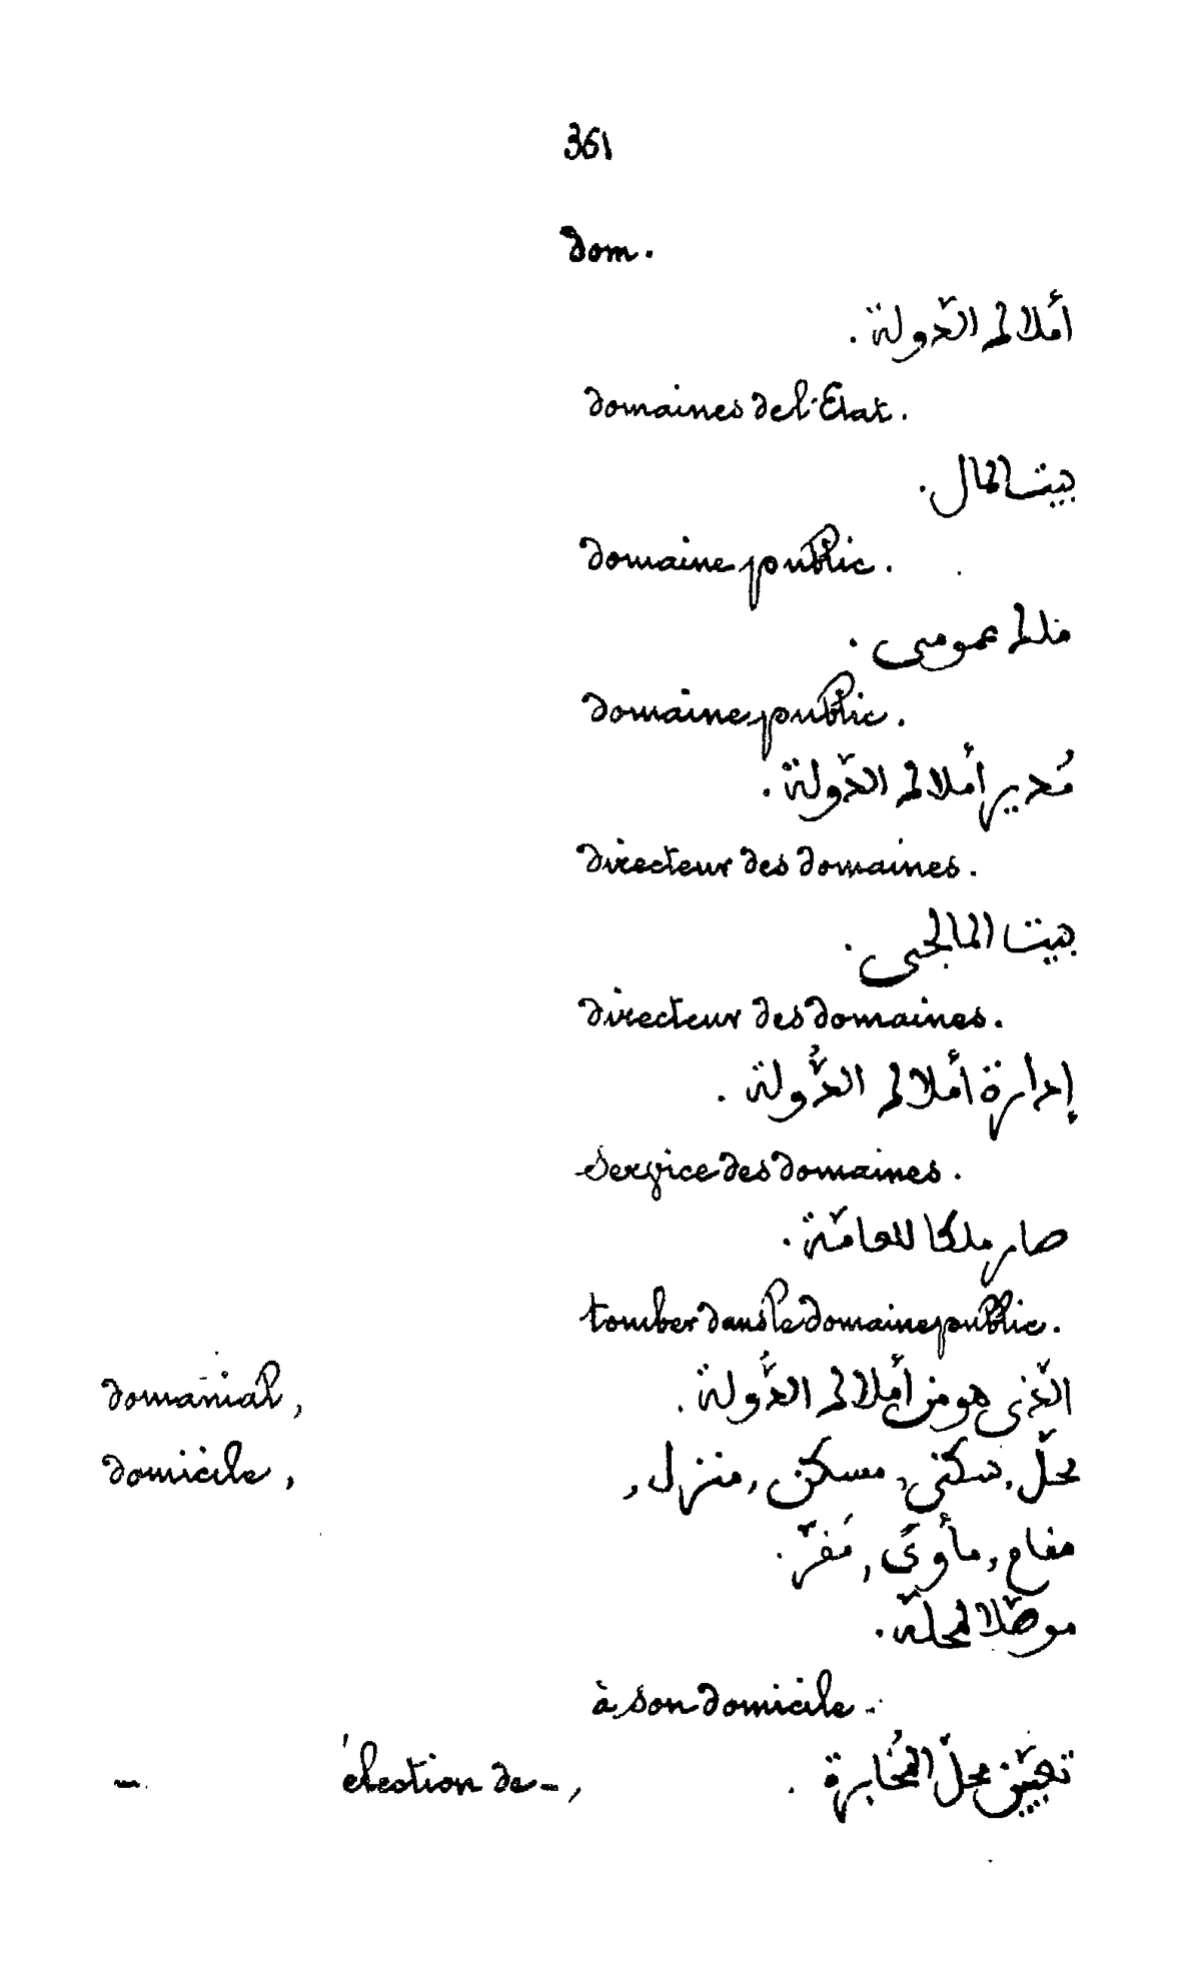 361
dom.
أملاك الدّولة.
domaines de l'Etat.
بيت المال.
domaine public.
ملك عمومى.
domaine public.
مُدير أملاك الدّولة.
directeur des domaines.
بيت المالجى.
directeur des domaines.
إدارة أملاك الدّولة.
service des domaines.
صار ملكا للعامّة.
tomber dans le domaine public.
domanial, الّذى هو من أملاك الدّولة.
domicile, محلّ, سكنى, مسكن, منزل,
مقام, مأوىً, مَقرّ.
موصّلا لمحلّه.
à son domicile.
– élection de –, تعيّين محلّ المُخابرة.